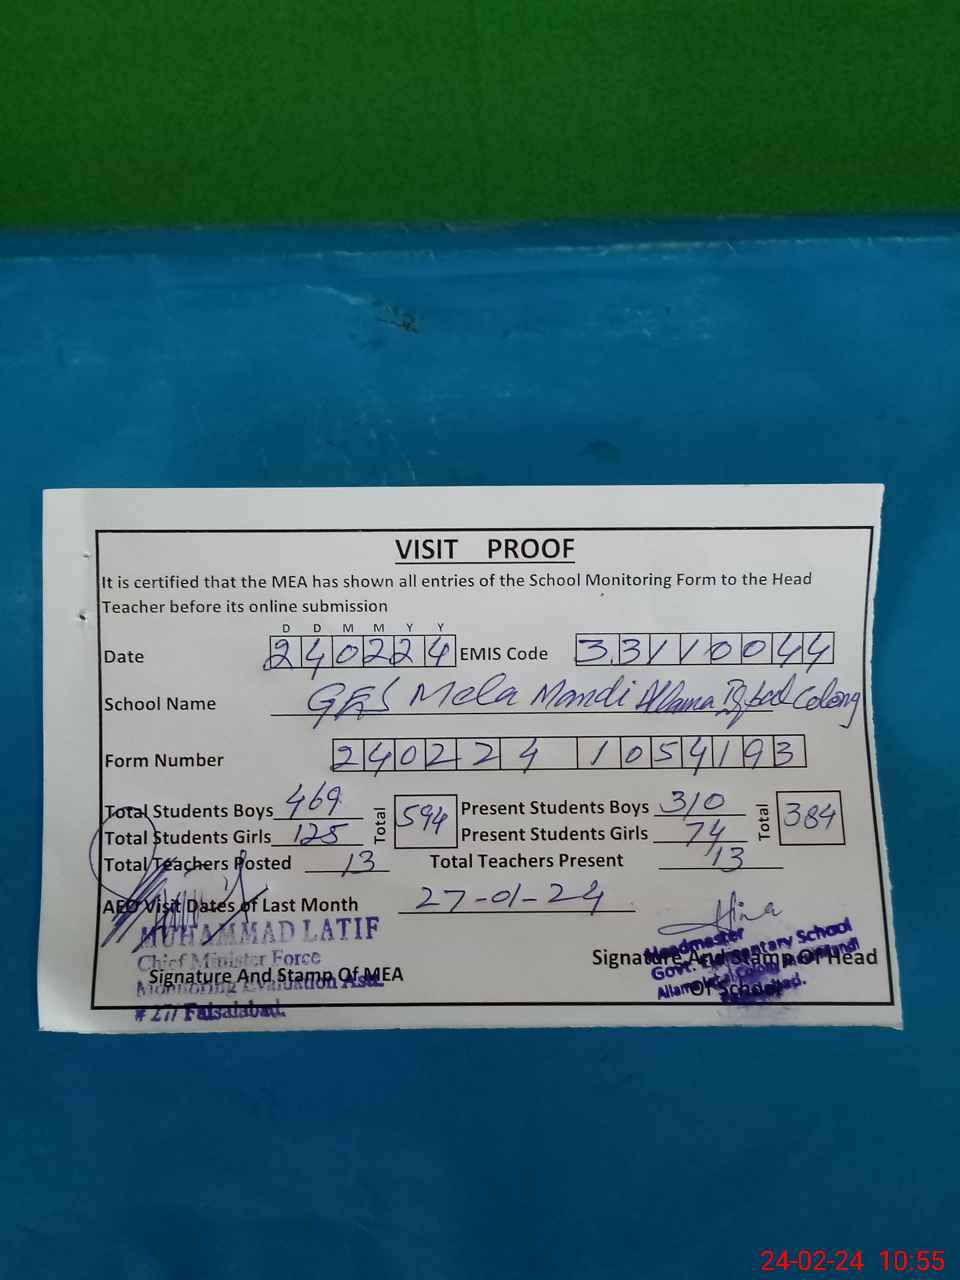 VISIT PROOF
It is certified that the MEA has shown all entries of the School Monitoring Form to the Head
Teacher before its online submission
D D M M Y Y
Date 240224 EMIS Code 33110044
School Name GES Mela Mandi Allama Iqbal Colony
Form Number 240224 1054193
Total Students Boys 469 Total 594 Present Students Boys 310 Total 384
Total Students Girls 125 Present Students Girls 74
Total Teachers Posted 13 Total Teachers Present 13
AEO Visit Dates of Last Month 27-01-24
MUHAMMAD LATIF
Chief Minister Force
Monitoring Evaluation Asst.
Faisalabad.
Signature And Stamp Of MEA
Hina
Headmaster
Govt. Elementary School
Signature And Stamp Of Head
Of School
24-02-24 10:55